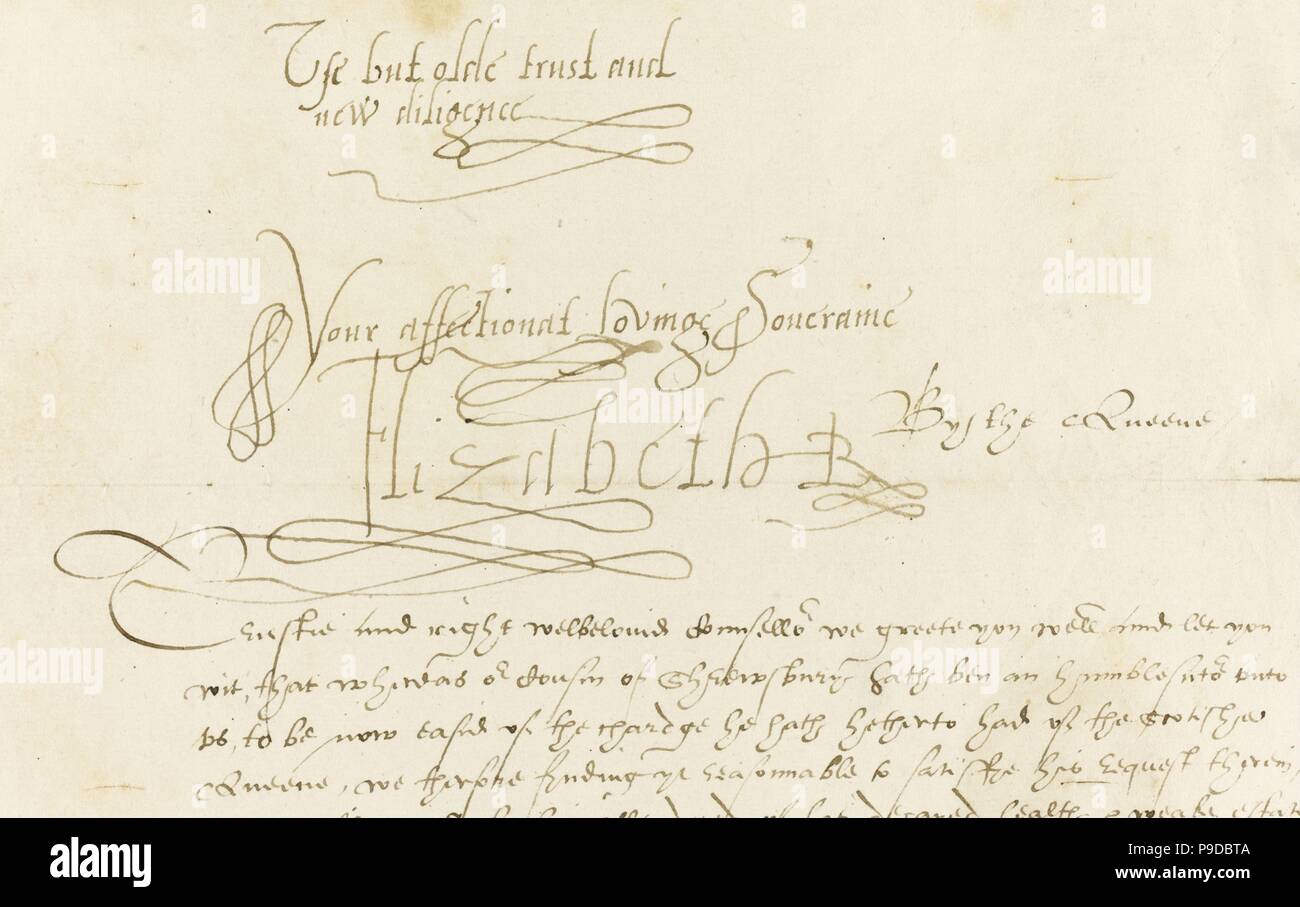 Use but olde trust and
new diligence
Your affectionat lovinge Soueraine
Elizabeth R
By the Queene
Trustie and right welbeloued Counsellor we greete you well and let you
wit, that whereas or cousin of Shrewsbury hath ben an humble sutor vnto
vs, to be now eased of the chardge he hath hetherto had of the Scotishe
Queene, we therfore finding yt reasonnable to satisfie his request therein,
healthe & weake estate
alamy
alamy
alamy
alamy
alamy
alamy
alamy
Image ID: P9DBTA
www.alamy.com